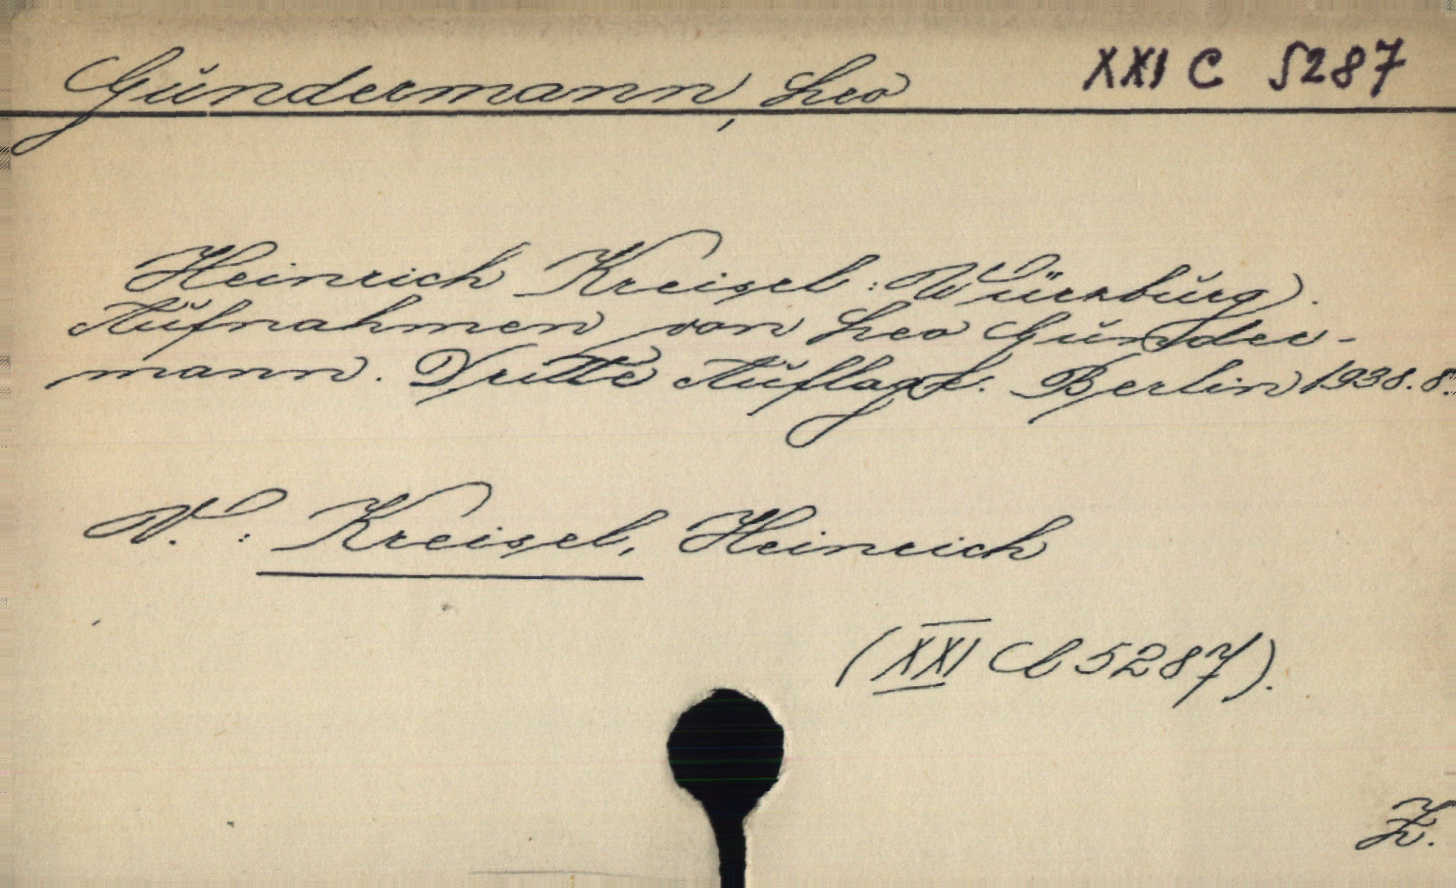 Gundermann, Leo XXI C 5287
Heinrich Kreisel: Würzburg.
Aufnahmen von Leo Gunder-
mann. Dritte Auflage. Berlin 1938. 8.
V.: Kreisel, Heinrich
(XXI C 5287).
Z.